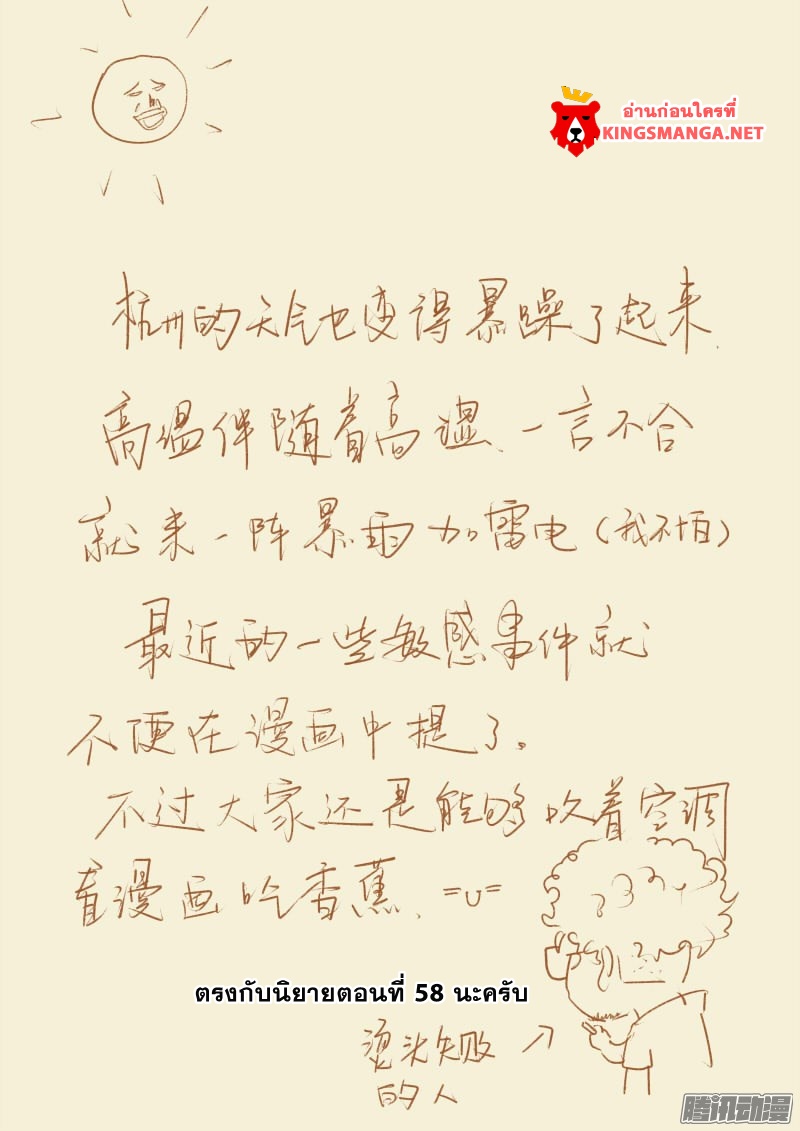 อ่านก่อนใครที่
KINGSMANGA.NET
杭州的天气也变得暴躁了起来.
高温伴随着高湿、一言不合
就来一阵暴雨加雷电(我不怕)
最近的一些敏感事件就
不便在漫画中提了。
不过大家还是能够吹着空调
看漫画吃香蕉、=U=
ตรงกับนิยายตอนที่ 58 นะครับ
烫头失败
的人
腾讯动漫